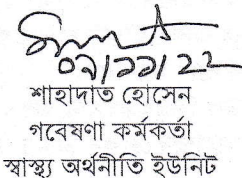 ০৭/১১/২২
শাহাদাত হোসেন
গবেষণা কর্মকর্তা
স্বাস্থ্য অর্থনীতি ইউনিট